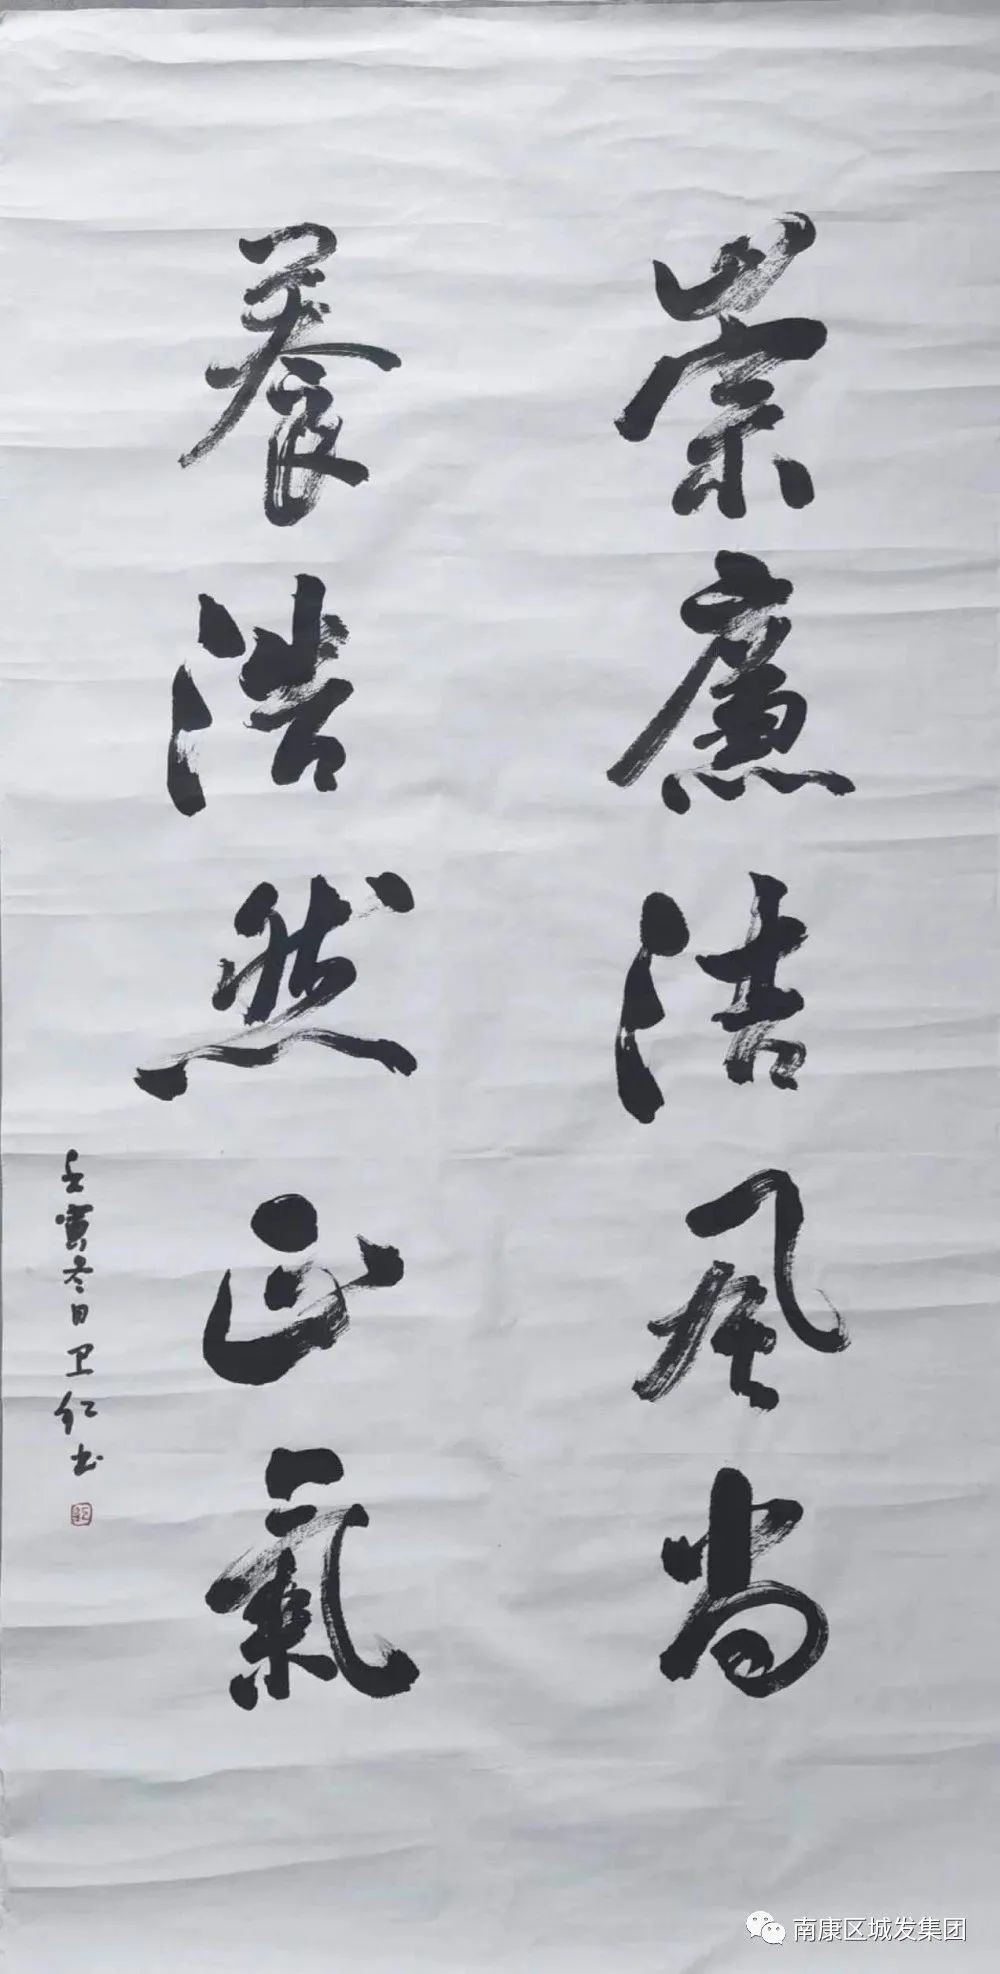 崇廉洁风尚
养浩然正氣
壬寅冬日卫红书
南康区城发集团